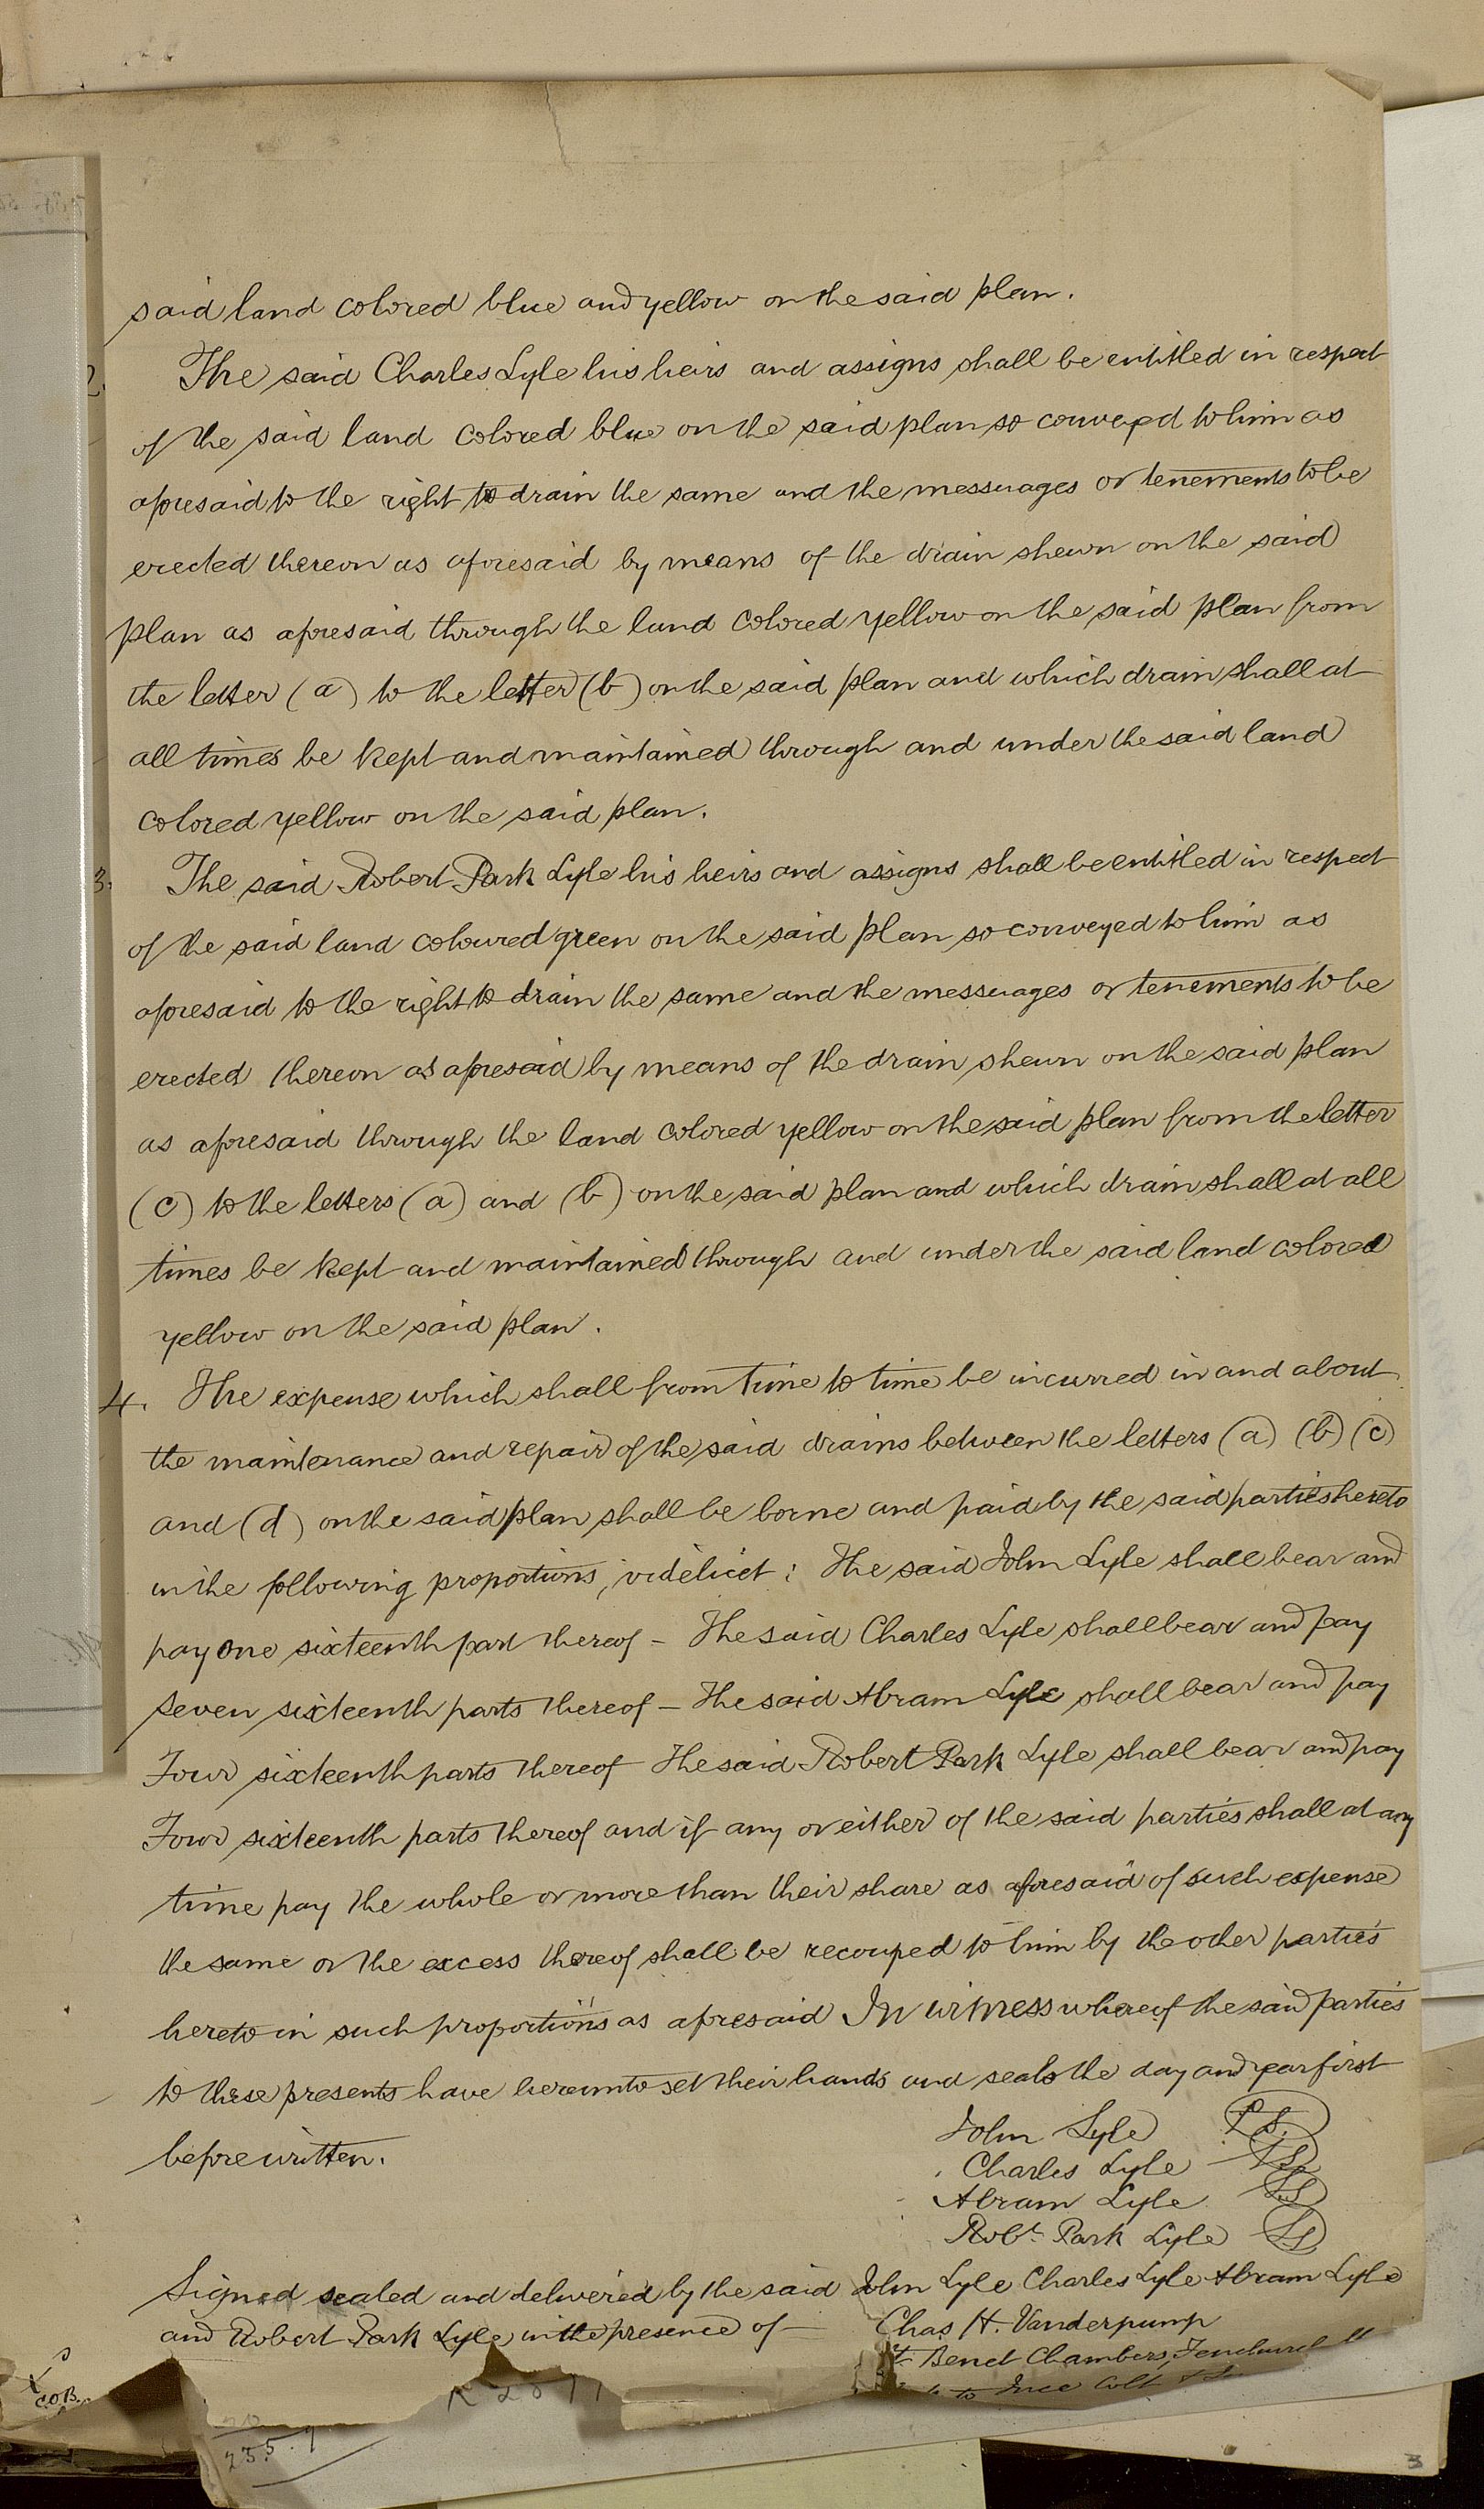 said land colored blue and yellow on the said plan.
2. The said Charles Lyle his heirs and assigns shall be entitled in respect
of the said land colored blue on the said plan so conveyed to him as
aforesaid to the right to drain the same and the messuages or tenements to be
erected thereon as aforesaid by means of the drain shewn on the said
plan as aforesaid through the land colored yellow on the said plan from
the letter (a) to the letter (b) on the said plan and which drain shall at
all times be kept and maintained through and under the said land
colored yellow on the said plan.
3. The said Robert Park Lyle his heirs and assigns shall be entitled in respect
of the said land coloured green on the said plan so conveyed to him as
aforesaid to the right to drain the same and the messuages or tenements to be
erected thereon as aforesaid by means of the drain shewn on the said plan
as aforesaid through the land colored yellow on the said plan from the letter
(c) to the letters (a) and (b) on the said plan and which drain shall at all
times be kept and maintained through and under the said land colored
yellow on the said plan.
4. The expense which shall from time to time be incurred in and about
the maintenance and repair of the said drains between the letters (a) (b) (c)
and (d) on the said plan shall be borne and paid by the said parties hereto
in the following proportions, videlicet: The said John Lyle shall bear and
pay one sixteenth part thereof - The said Charles Lyle shall bear and pay
seven sixteenth parts thereof - The said Abram Lyle shall bear and pay
Four sixteenth parts thereof The said Robert Park Lyle shall bear and pay
Four sixteenth parts thereof and if any or either of the said parties shall at any
time pay the whole or more than their share as aforesaid of such expense
the same or the excess thereof shall be recouped to him by the other parties
hereto in such proportions as aforesaid In witness whereof the said parties
to these presents have hereunto set their hands and seals the day and year first
before written.
John Lyle LS
Charles Lyle LS
Abram Lyle LS
Robt. Park Lyle LS
Signed sealed and delivered by the said John Lyle Charles Lyle Abram Lyle
and Robert Park Lyle in the presence of - Chas H. Vanderpump
St. Benet Chambers, Fenchurch St
to Ince Colt &
COB.
235.7
3